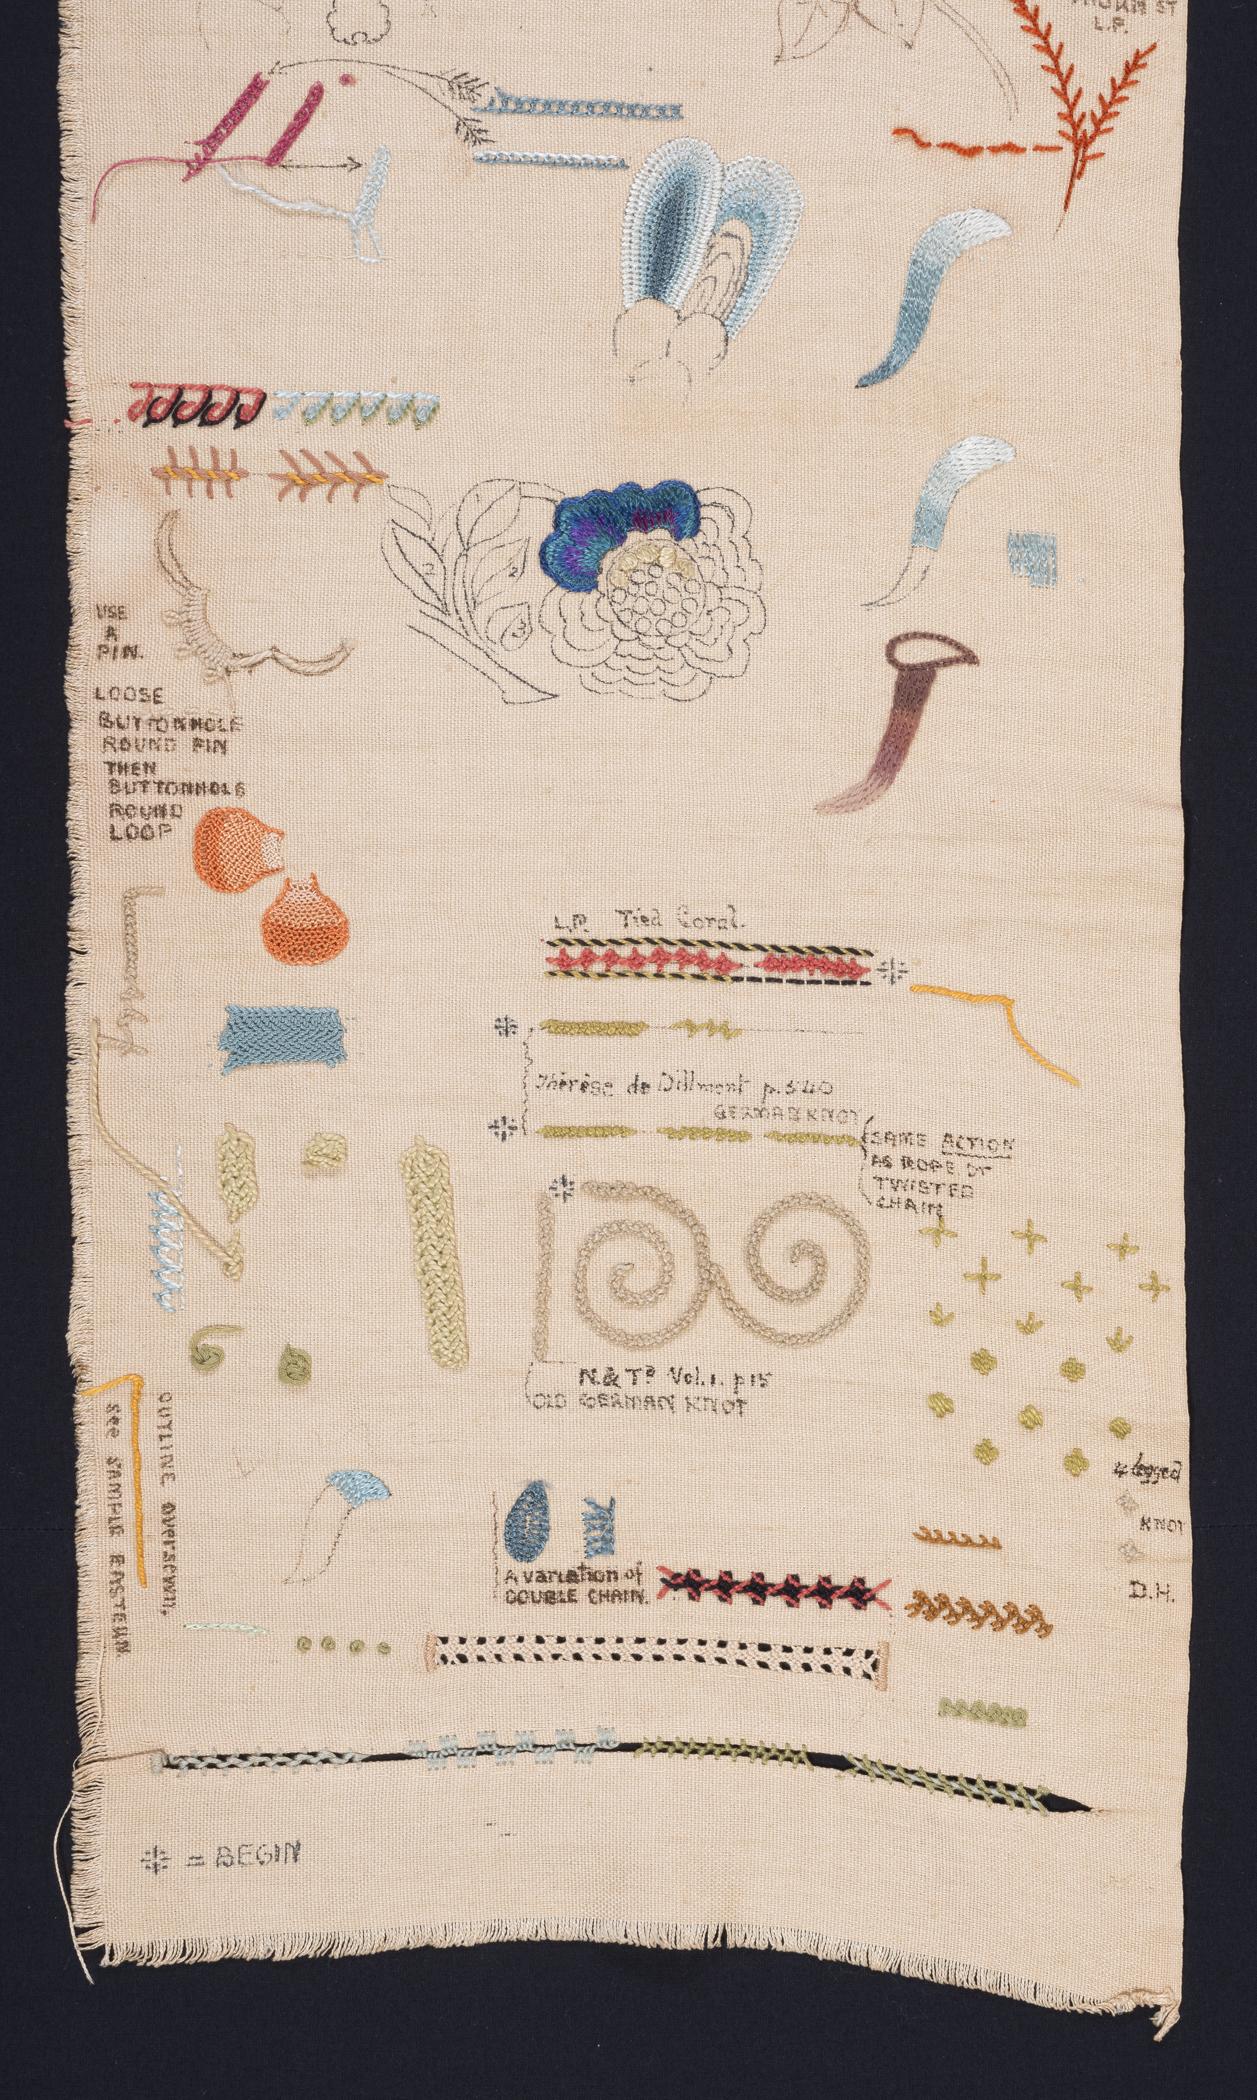 L.P.
USE
A
PIN.
LOOSE
BUTTONHOLE
ROUND PIN
THEN
BUTTONHOLE
ROUND
LOOP
L.P. Tied Coral.
Thérèse de Dillmont p.540
GERMAN KNOT
SAME ACTION
AS ROPE OR
TWISTED
CHAIN
N.& Tº Vol.1. p15
OLD GERMAN KNOT
OUTLINE oversewn,
see SAMPLE EASTERN
4 legged
KNOT
D.H.
A variation of
DOUBLE CHAIN.
= BEGIN
1
2
2
3